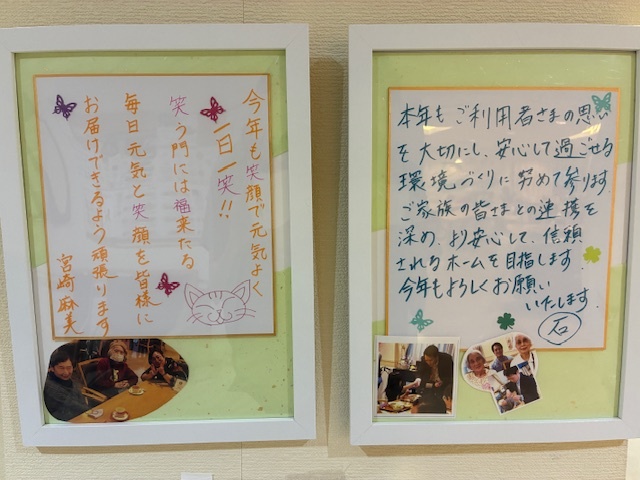 今年も笑顔で元気よく
一日一笑!!
笑う門には福来たる
毎日元気と笑顔を皆様に
お届けできるよう頑張ります
宮崎麻美
本年も ご利用者さまの思い
を大切にし、安心して過ごせる
環境づくりに努めて参ります
ご家族の皆さまとの連携を
深め、より安心して、信頼
されるホームを目指します。
今年もよろしくお願い
いたします。
石